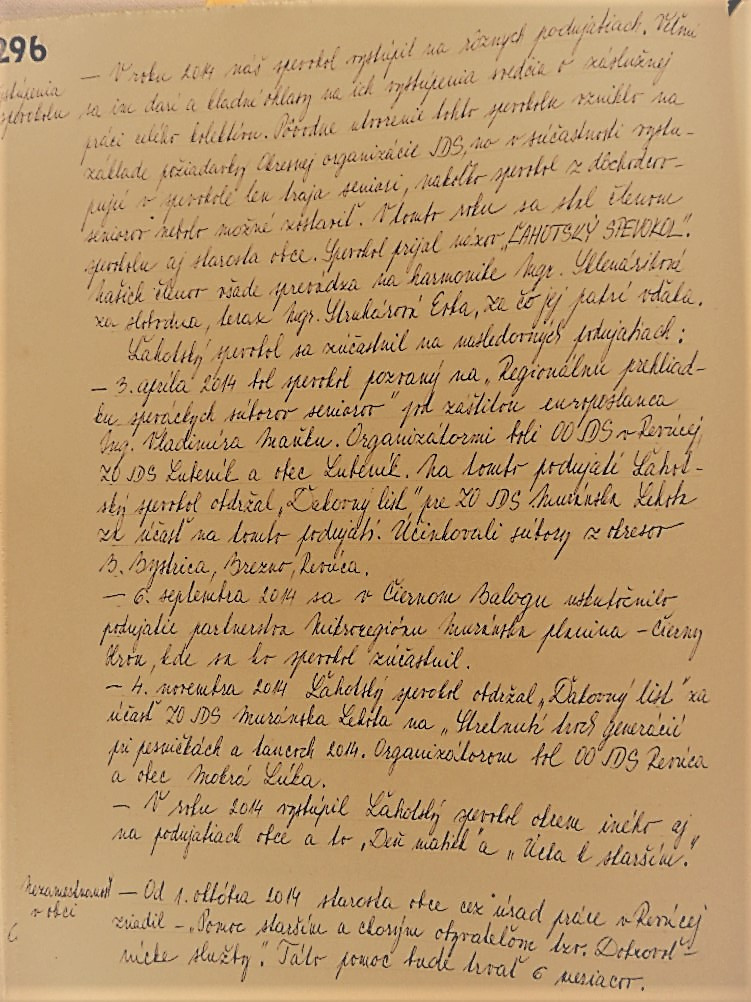 296
vystúpenia
spevokolu
– V roku 2014 náš spevokol vystúpil na rôznych podujatiach. Veľmi
sa im darí a kladné ohlasy na ich vystúpenia svedčia o záslužnej
práci celého kolektívu. Pôvodne utvorenie tohto spevokolu vzniklo na
základe požiadavky Okresnej organizácie JDS, no v súčastnosti vystu-
pujú v spevokole len traja seniori, nakoľko spevokol z dôchodcov-
seniorov nebolo možné zostaviť. V tomto roku sa stal členom
spevokolu aj starosta obce. Spevokol prijal názov „ĽAHOTSKÝ SPEVOKOL".
Našich členov všade sprevádza na harmonike Mgr. Sklenáriková
za slobodna, teraz Mgr. Struhárová Evka, za čo jej patrí vďaka.
Ľahotský spevokol sa zúčastnil na nasledovných podujatiach:
– 3. apríla 2014 bol spevokol pozvaný na „Regionálnu prehliad-
ku speváckych súborov seniorov" pod záštitou europoslanca
Ing. Vladimíra Maňku. Organizátormi boli OO JDS v Revúcej,
ZO JDS Lubeník a obec Lubeník. Na tomto podujatí Ľahot-
ský spevokol obdržal „Ďakovný list" pre ZO JDS Muránska Lehota
za účasť na tomto podujatí. Účinkovali súbory z okresov
B. Bystrica, Brezno, Revúca.
– 6. septembra 2014 sa v Čiernom Balogu uskutočnilo
podujatie partnerstva Mikroregiónu Muránska planina – Čierny
Hron, kde sa ho spevokol zúčastnil.
– 4. novembra 2014 Ľahotský spevokol obdržal „Ďakovný list" za
účasť ZO JDS Muránska Lehota na „Stretnutí troch generácií
pri pesničkách a tancoch 2014. Organizátorom bol OO JDS Revúca
a obec Mokrá Lúka.
– V roku 2014 vystúpil Ľahotský spevokol okrem iného aj
na podujatiach obce a to „Deň matiek" a „Úcta k starším."
Nezamestnanosť
v obci
– Od 1. októbra 2014 starosta obce cez úrad práce v Revúcej
zriadil – „Pomoc starším a chorým obyvateľom tzv. Dobrovoľ-
nícke služby". Táto pomoc bude trvať 6 mesiacov.